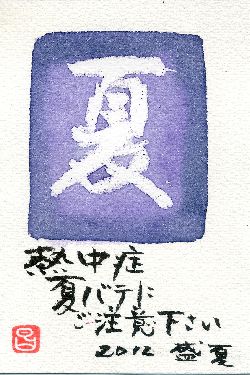 夏
熱中症
夏バテに
ご注意下さい
2012 盛夏